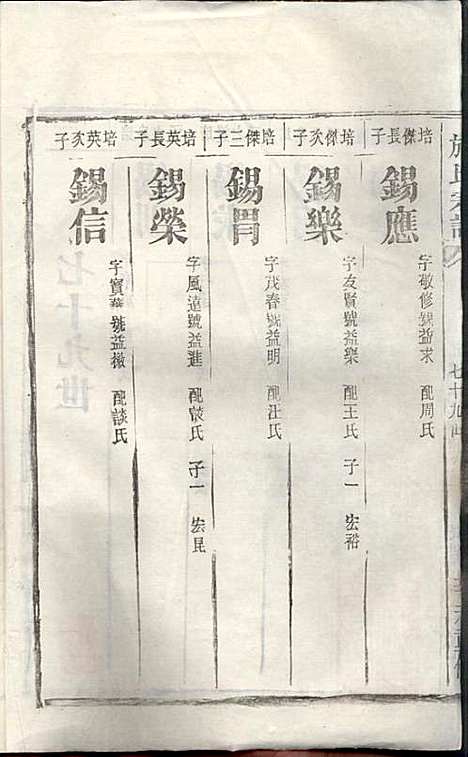 培傑長子
錫應
字敬修號益求 配周氏
培傑次子
錫樂
字友賢號益樂 配王氏 子一 宏裕
培傑三子
錫
字茂春號益明 配汪氏
培英長子
錫榮
字風遠號益進 配談氏 子一 宏昆
培英次子
錫信
字寶華號益徵 配談氏
七十九世